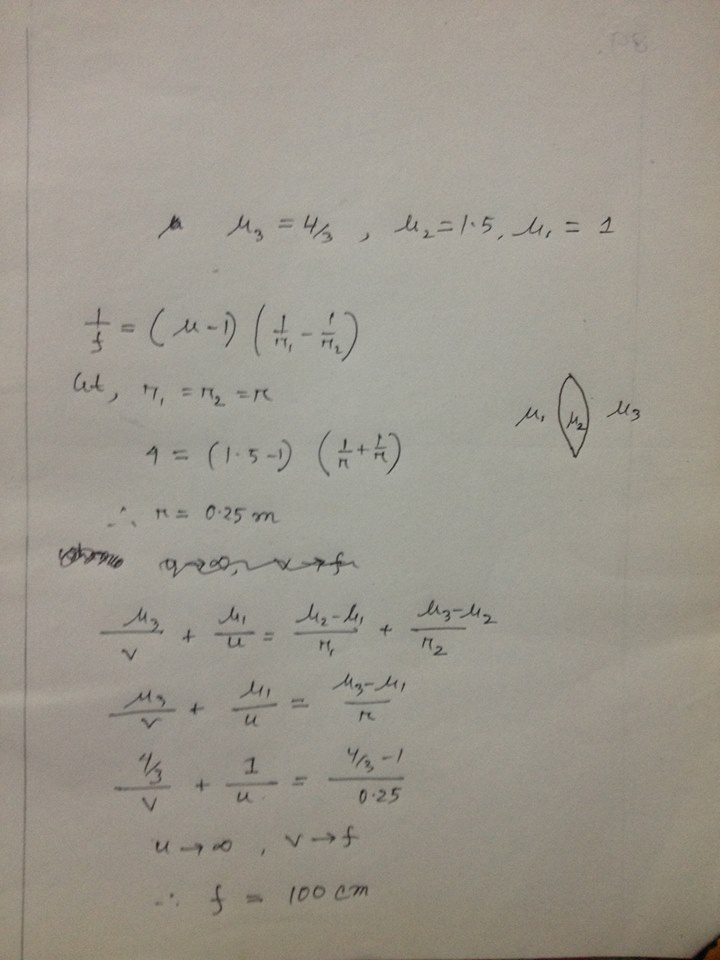 μ₃ = 4/3 , μ₂ = 1.5, μ₁ = 1
1/f = (μ-1) (1/r₁ - 1/r₂)
let, r₁ = r₂ = r
μ₁ μ₂ μ₃
4 = (1.5-1) (1/r + 1/r)
∴ r = 0.25 m
μ₃/v + μ₁/u = μ₂-μ₁/r₁ + μ₃-μ₂/r₂
μ₃/v + μ₁/u = μ₃-μ₁/r
4/3/v + 1/u = 4/3-1/0.25
u → ∞ , v → f
∴ f = 100 cm